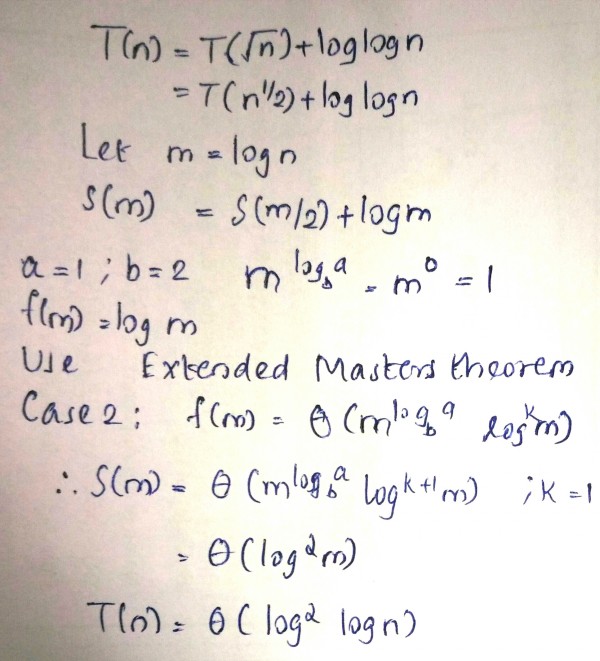 T(n) = T(√n) + log log n
= T(n^1/2) + log log n
Let m = log n
S(m) = S(m/2) + log m
a = 1 ; b = 2 m^log_b a = m^0 = 1
f(m) = log m
Use Extended Masters theorem
Case 2 ; f(m) = θ (m^log_b a log^k m)
∴ S(m) = θ (m^log_b a log^k+1 m) ; K = 1
= θ (log^2 m)
T(n) = θ ( log^2 log n)